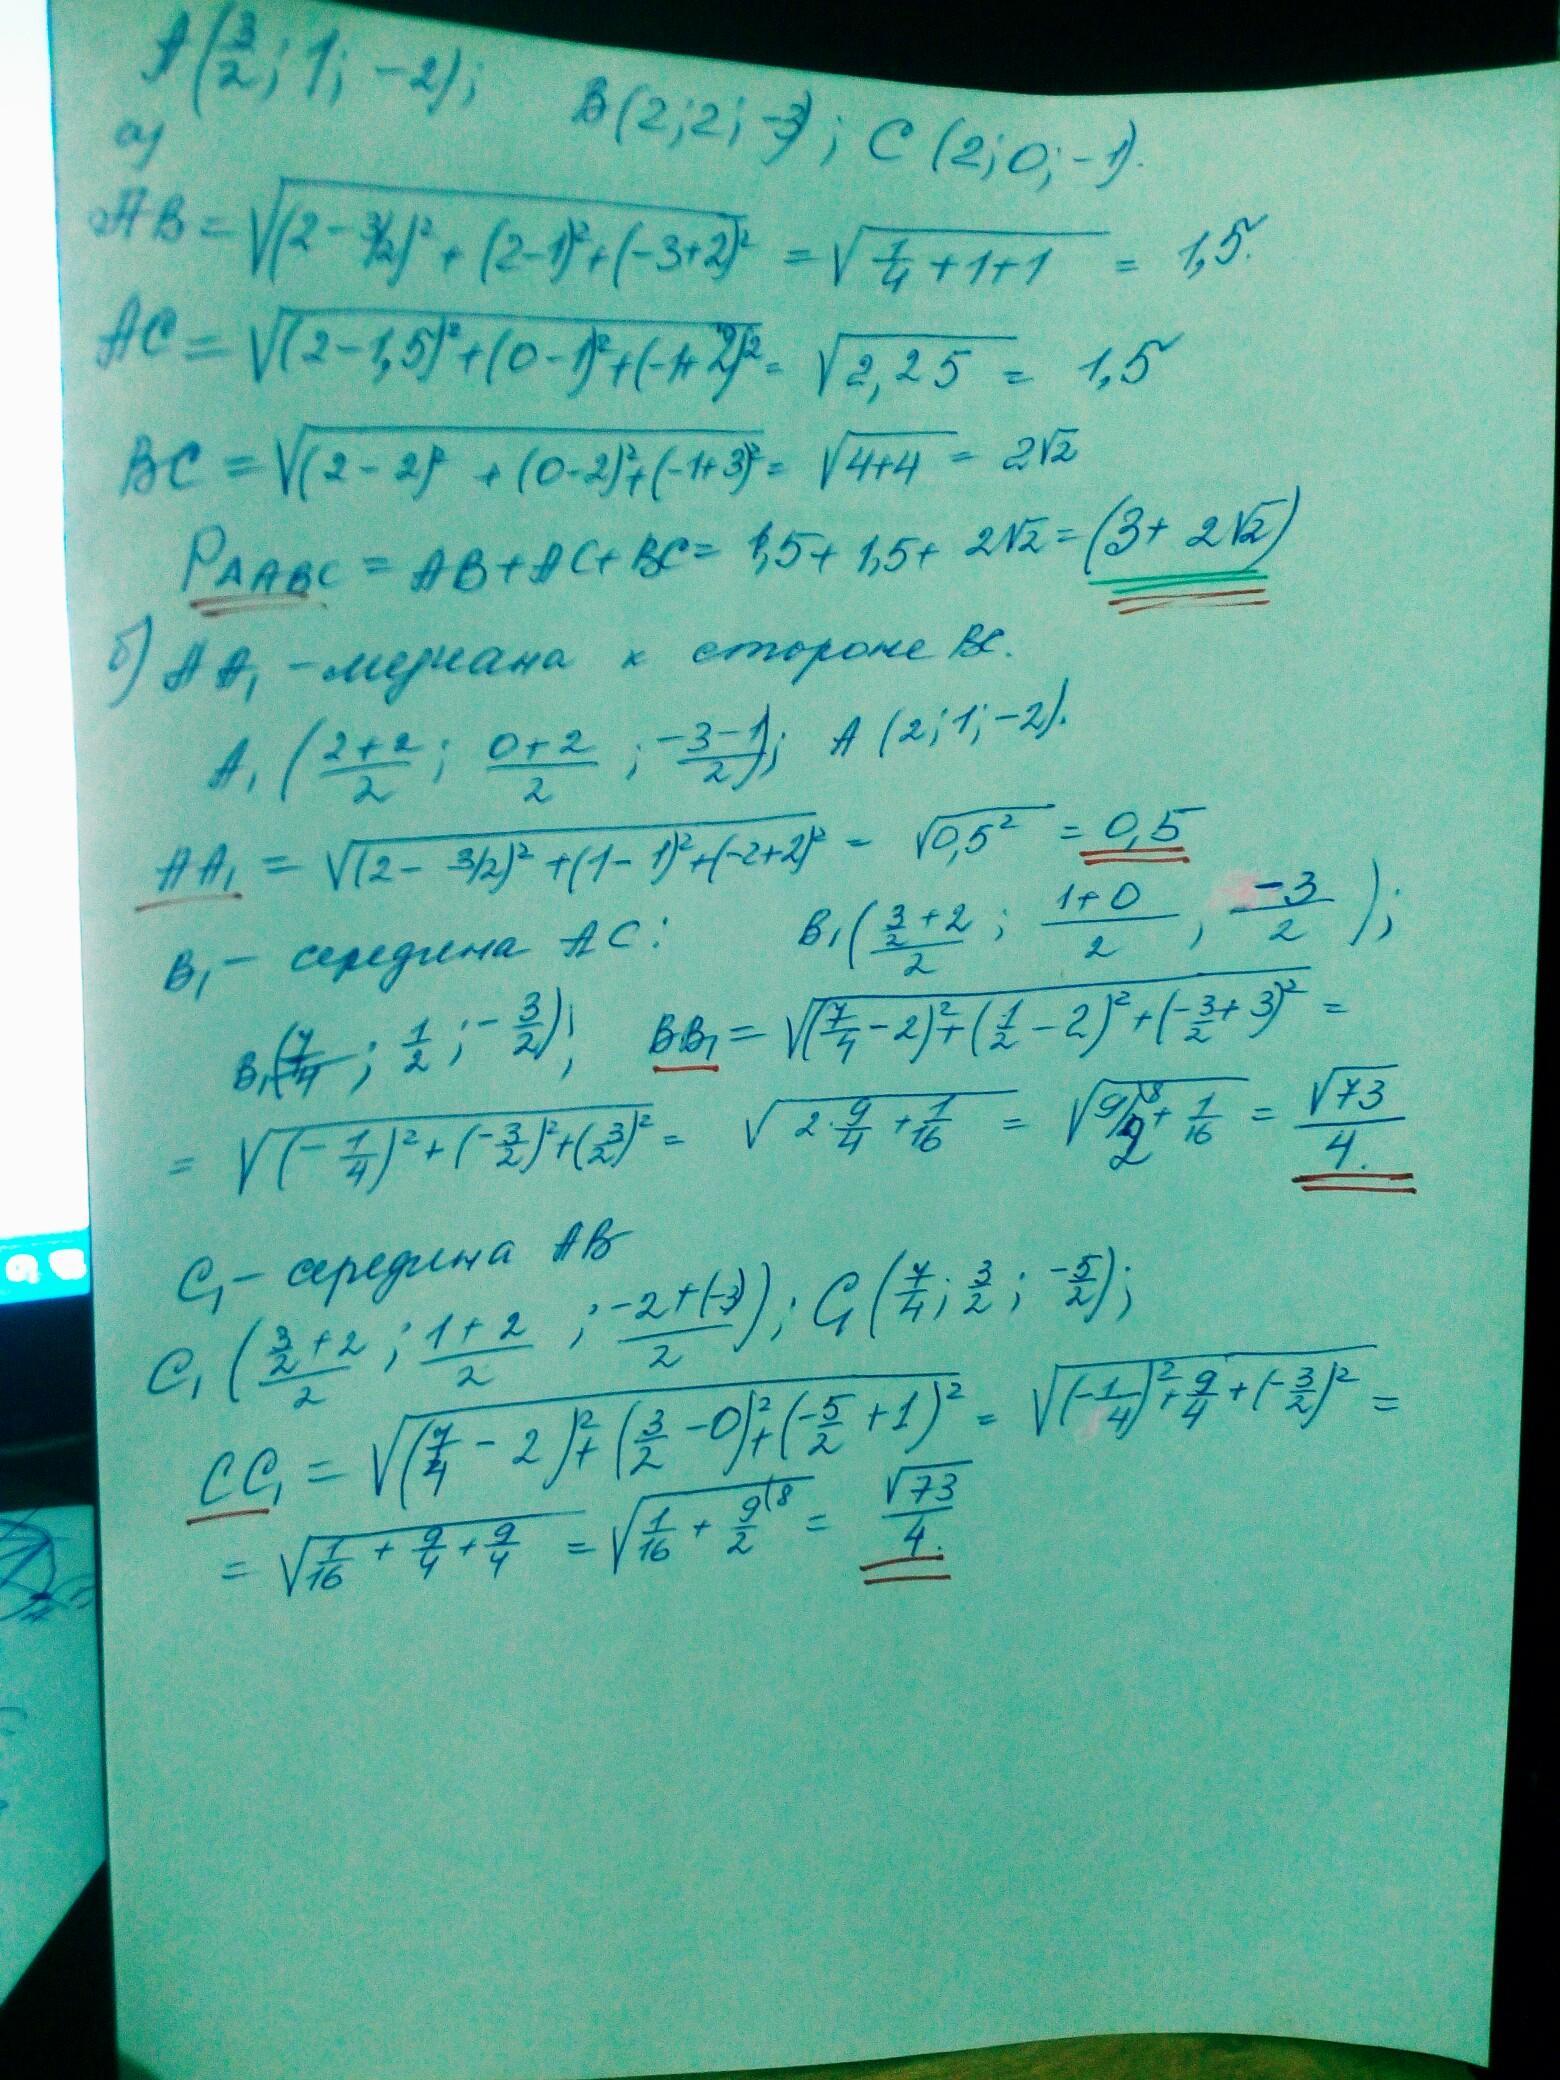 A(3/2; 1; -2); B(2; 2; -3); C(2; 0; -1).
а)
AB = √((2 - 3/2)² + (2-1)² + (-3+2)²) = √(1/4 + 1 + 1) = 1,5.
AC = √((2-1,5)² + (0-1)² + (-1+2)²) = √2,25 = 1,5
BC = √((2-2)² + (0-2)² + (-1+3)²) = √(4+4) = 2√2
P△ABC = AB + AC + BC = 1,5 + 1,5 + 2√2 = (3 + 2√2)
б) AA₁ - медиана к стороне BC.
A₁((2+2)/2; (0+2)/2; (-3-1)/2); A(2; 1; -2).
AA₁ = √((2 - 3/2)² + (1-1)² + (-2+2)²) = √0,5² = 0,5
B₁ - середина AC: B₁((3/2+2)/2; (1+0)/2, -3/2);
B₁(7/4; 1/2; -3/2); BB₁ = √((7/4 - 2)² + (1/2 - 2)² + (-3/2 + 3)²) =
= √((-1/4)² + (-3/2)² + (3/2)²) = √(2·9/4 + 1/16) = √(9/2⁽⁸ + 1/16) = √73/4.
C₁ - середина AB
C₁((3/2+2)/2; (1+2)/2; (-2+(-3))/2); C₁(7/4; 3/2; -5/2);
CC₁ = √((7/4 - 2)² + (3/2 - 0)² + (-5/2 + 1)²) = √((-1/4)² + 9/4 + (-3/2)²) =
= √(1/16 + 9/4 + 9/4) = √(1/16 + 9/2⁽⁸) = √73/4.